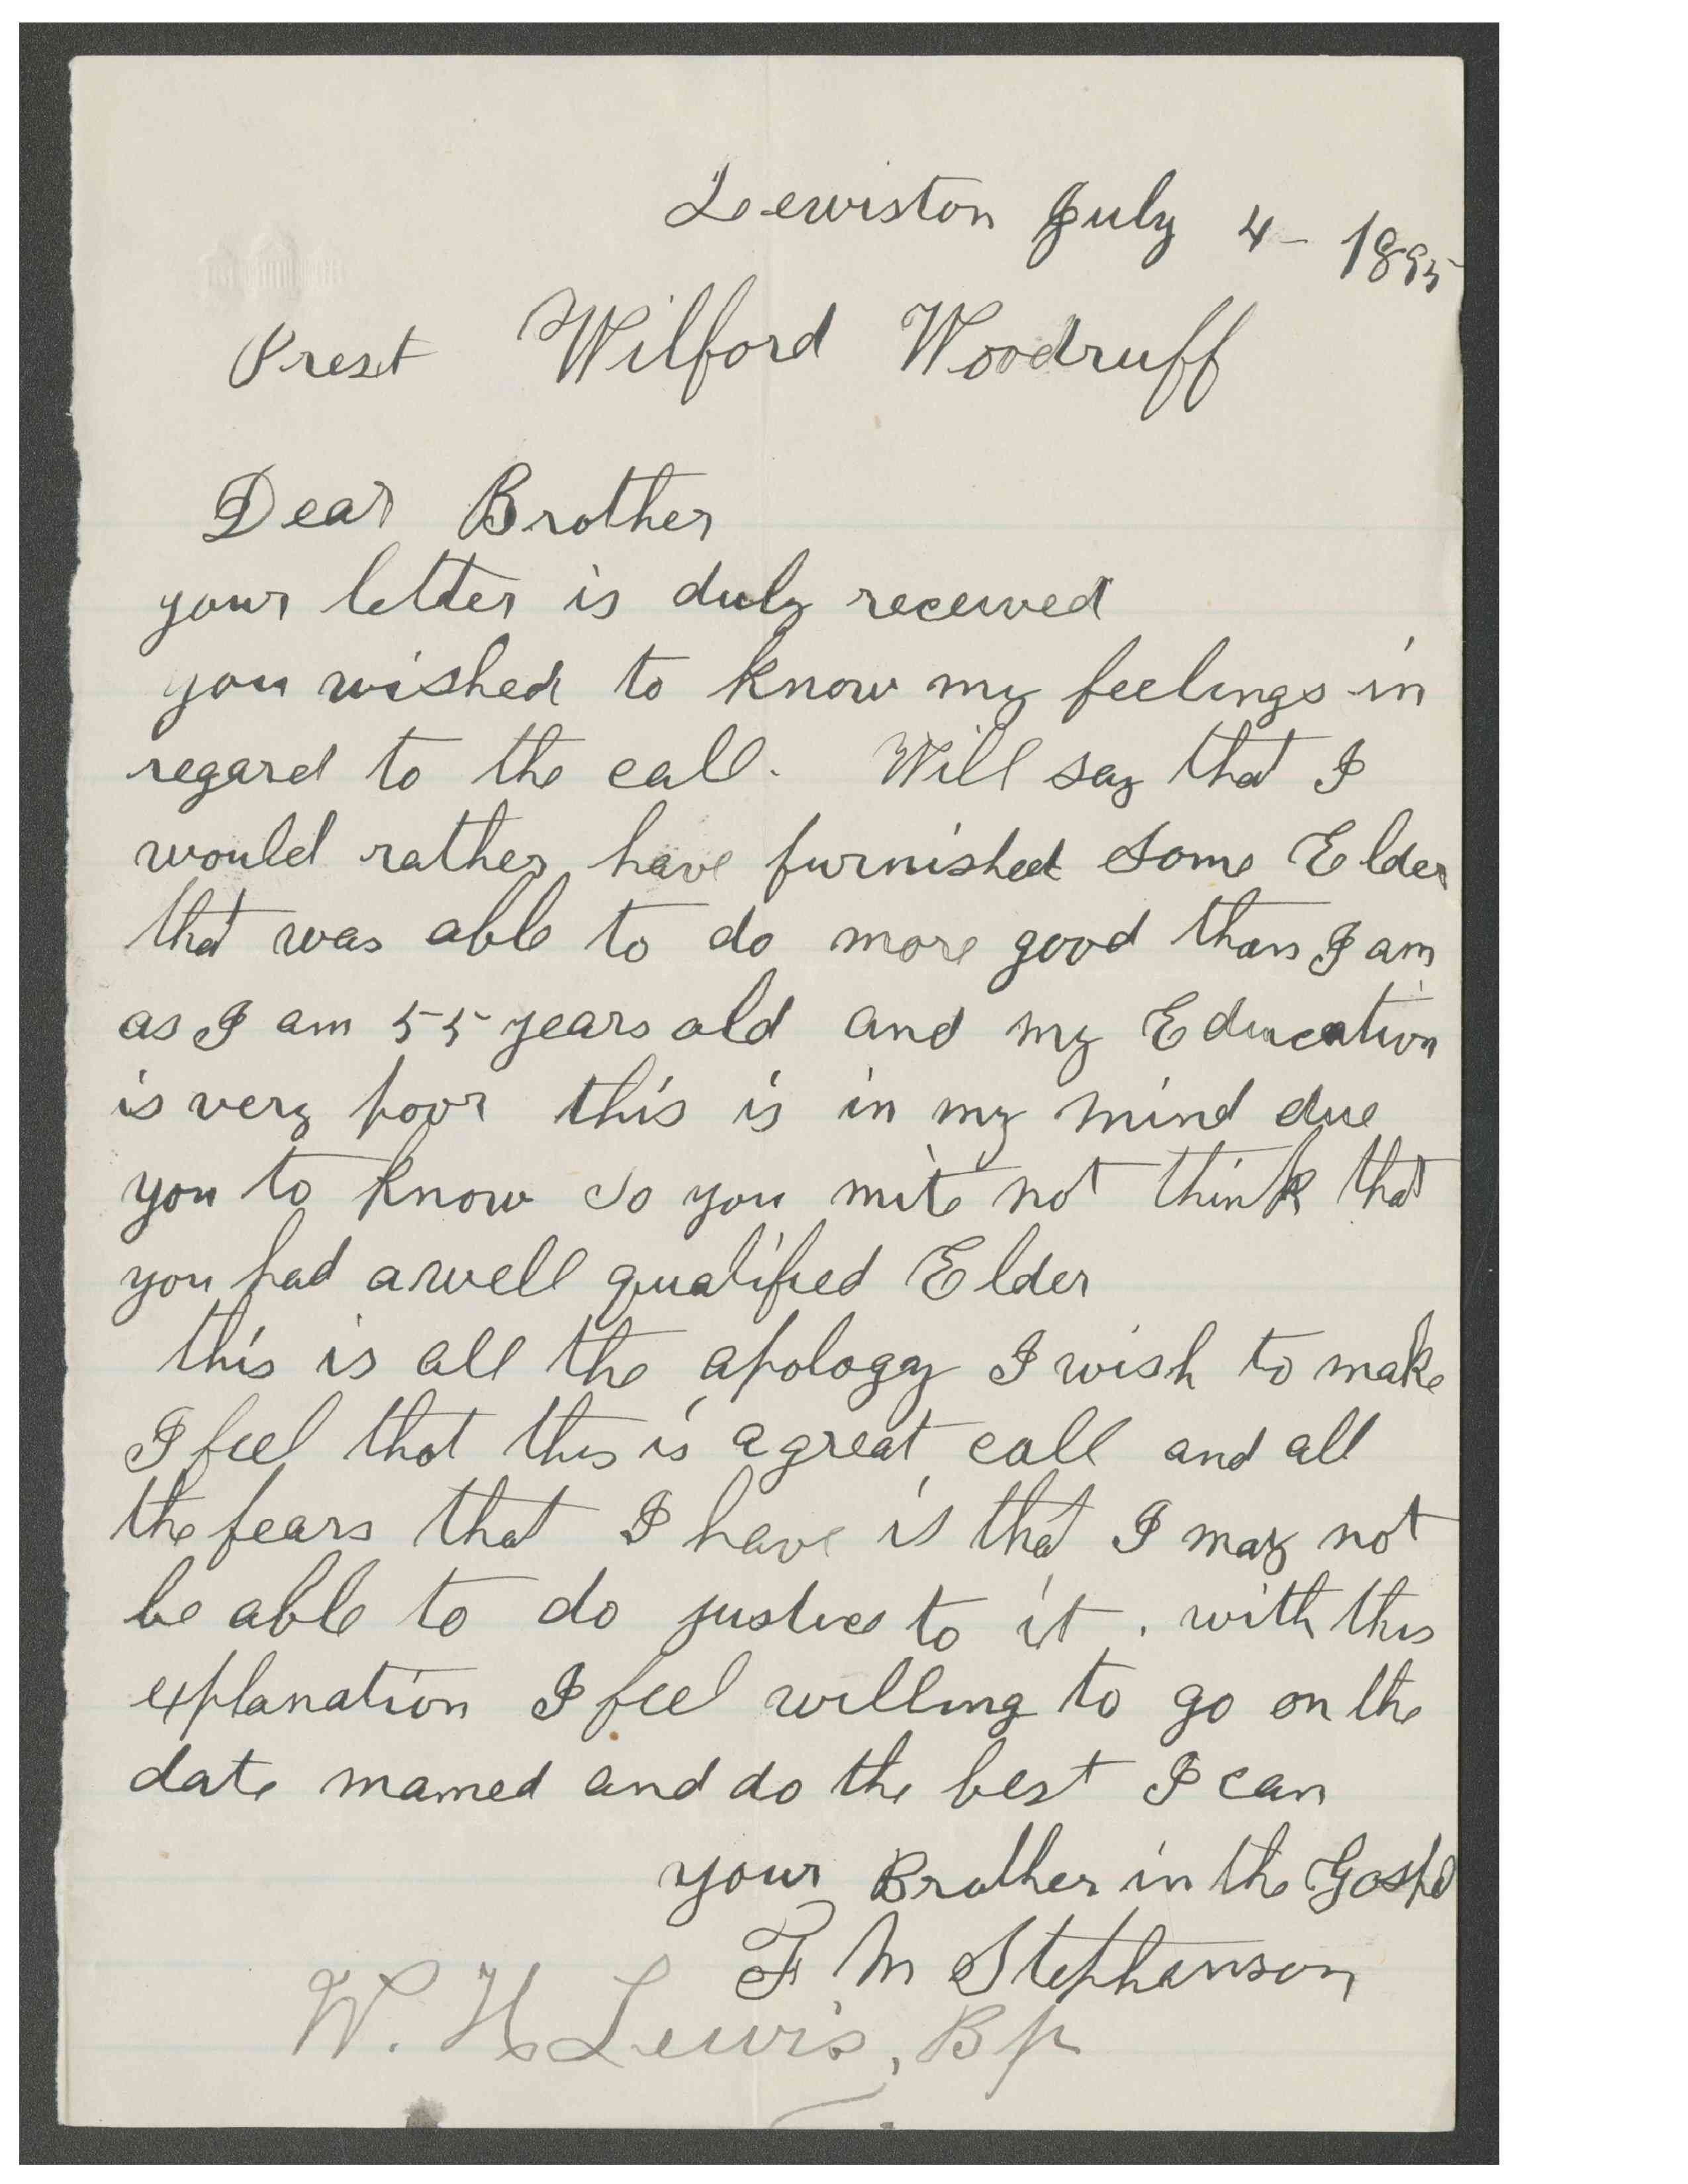 Lewiston July 4 - 1895
Prest Wilford Woodruff
Dear Brother
your letter is duly received
you wished to know my feelings in
regard to the call. Will say that I
would rather have furnished some Elder
that was able to do more good than I am
as I am 55 years old and my Education
is very poor this is in my mind due
you to know so you mite not think that
you had a well qualified Elder
this is all the apology I wish to make
I feel that this is a great call and all
the fears that I have is that I may not
be able to do justice to it. with this
explanation I feel willing to go on the
date mamed and do the best I can
your Brother in the Gospel
F M Stephanson
W. H Lewis, Bp